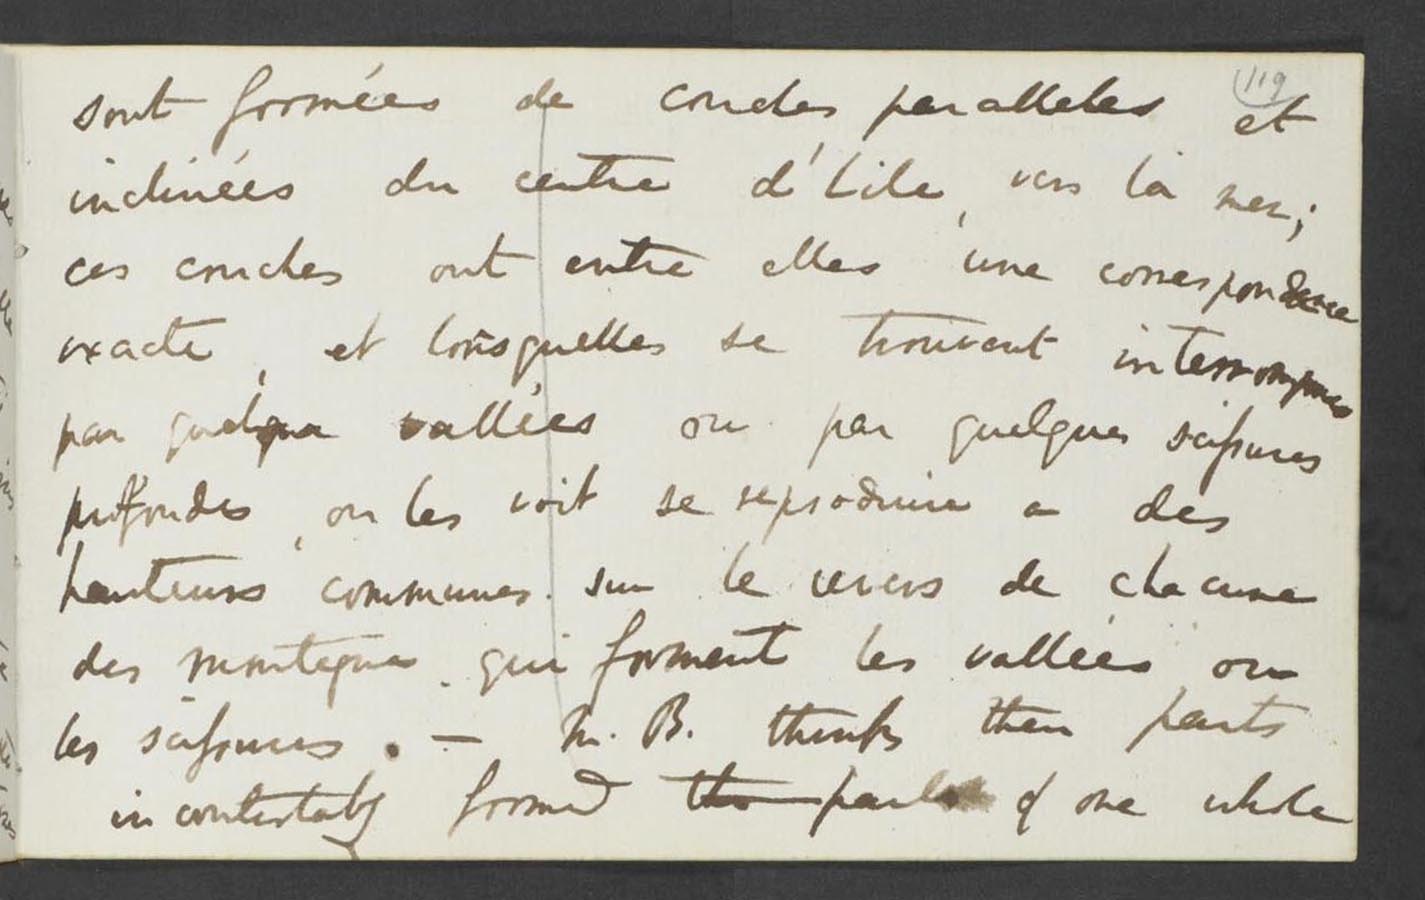 119
sont formées de couches paralleles et
inclinées du centre d'Lile, vers la mer;
ces couches ont entre elles une correspondence
exacte, et lorsquelles se trouvent interrompues
par quelque vallées ou par quelques scissures
profondes, on les voit se reproduire a des
hauteurs communes sur le revers de chacune
des montagnes qui forment les vallées ou
les scissures. — M. B. thinks then parts
incontestably formed the parts of one whole